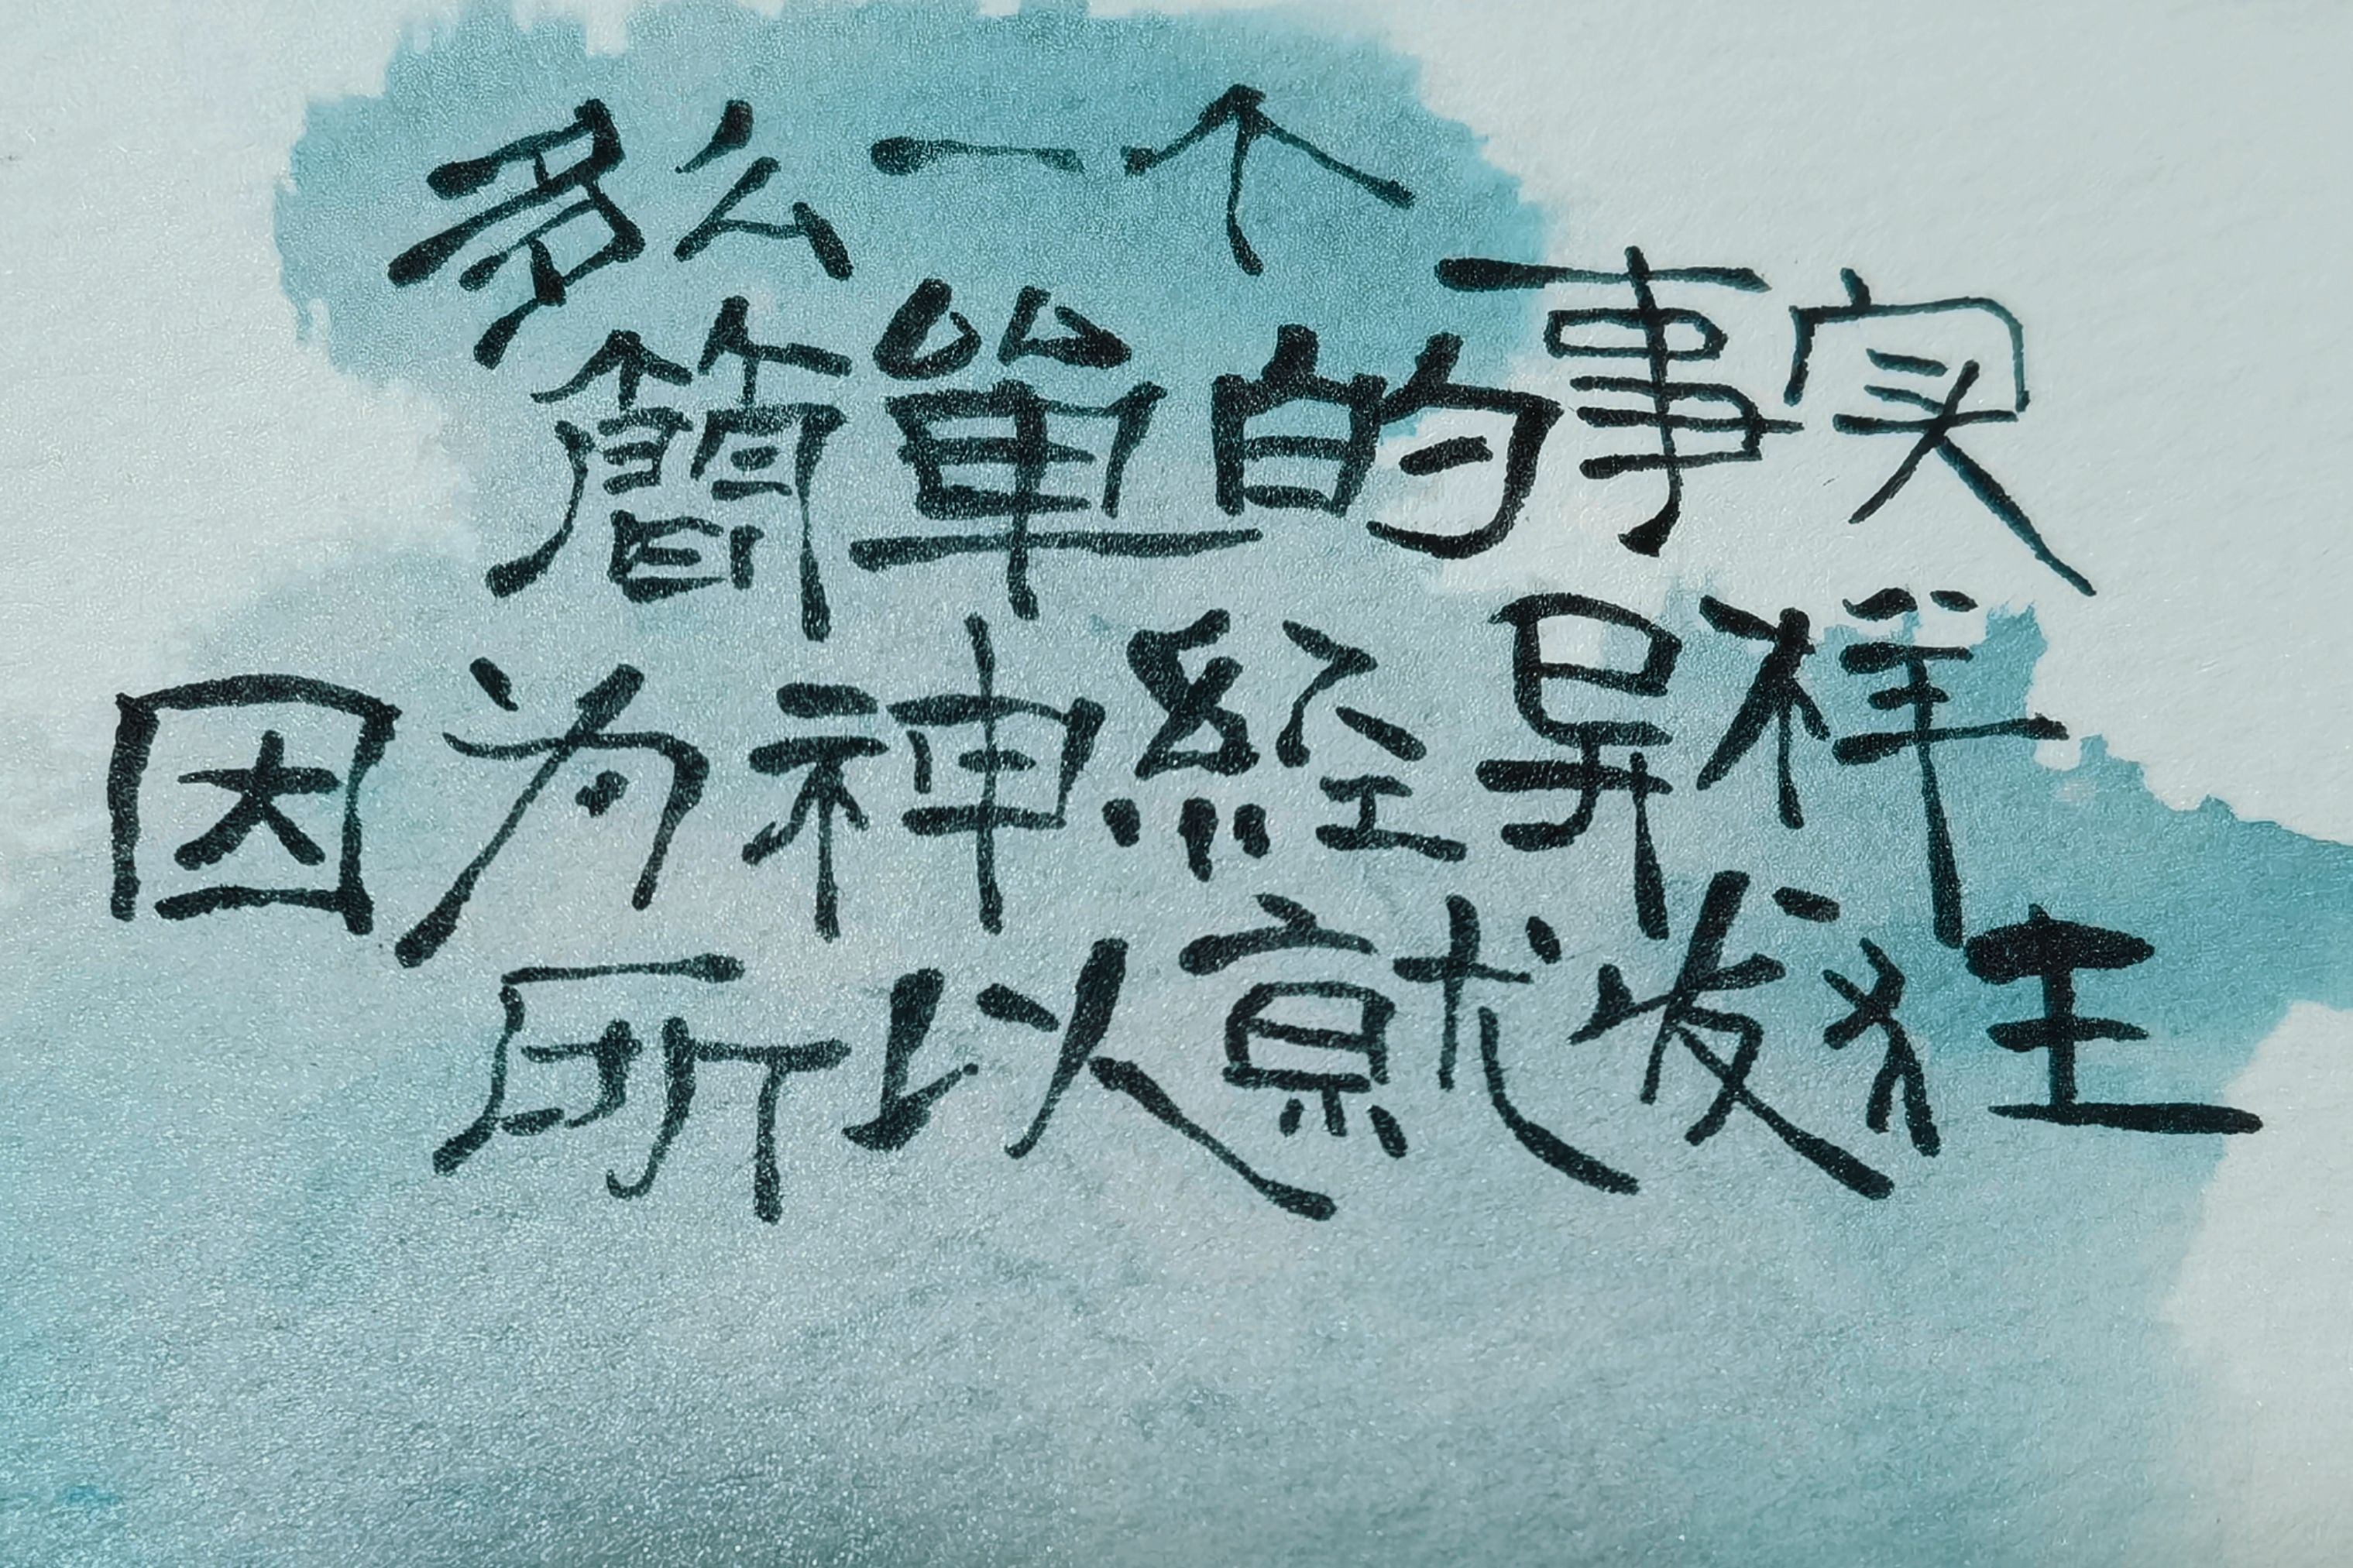 多么一个
簡單的事实
因为神經异样
所以就发狂